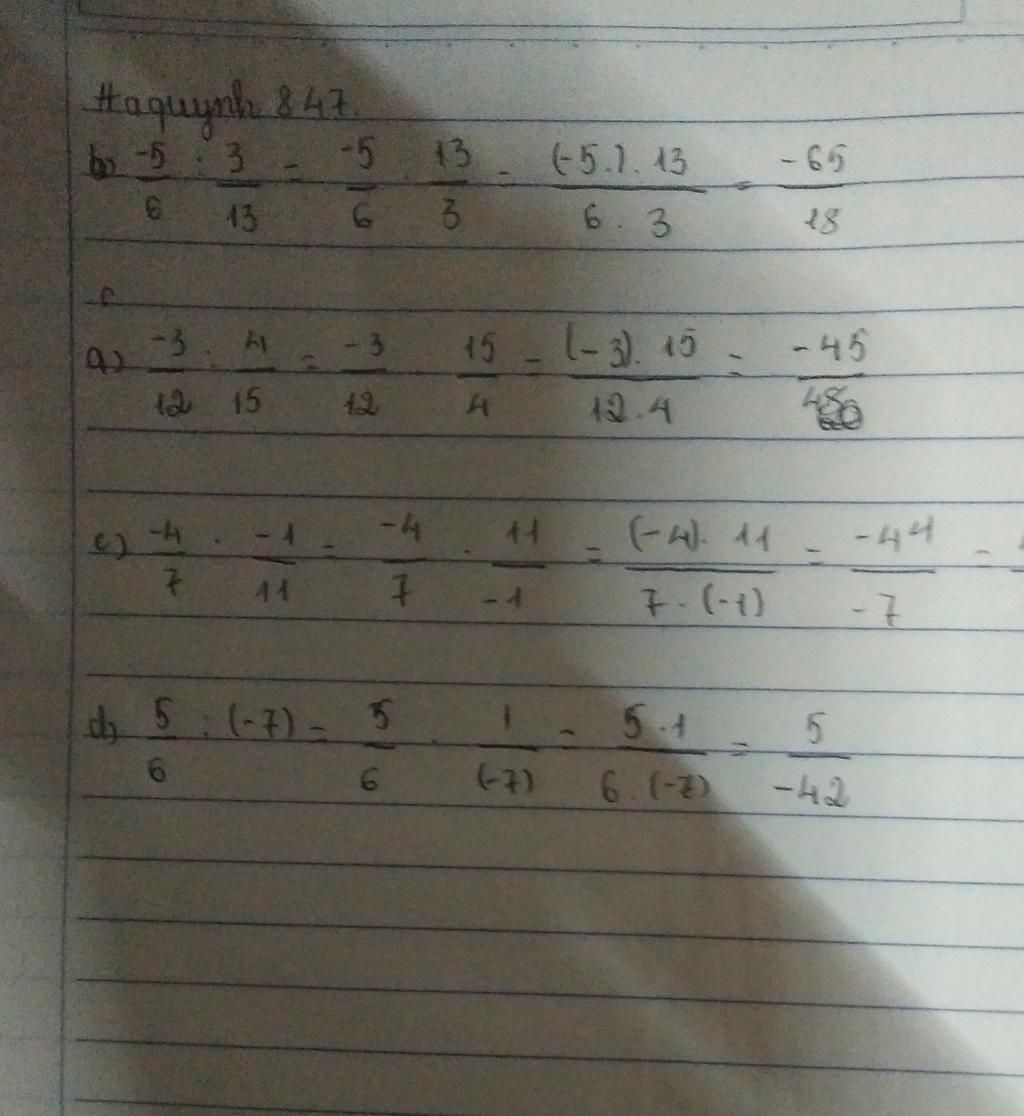 Haquynh 847.
b) -5/6 : 3/13 = -5/6 . 13/3 = (-5.) . 13 / 6 . 3 = -65/18
a) -3/12 : 4/15 = -3/12 . 15/4 = (-3) . 15 / 12 . 4 = -45/48
c) -4/7 : -1/11 = -4/7 . 11/-1 = (-4) . 11 / 7 . (-1) = -44/-7 =
d) 5/6 : (-7) = 5/6 . 1/(-7) = 5 . 1 / 6 . (-7) = 5/-42